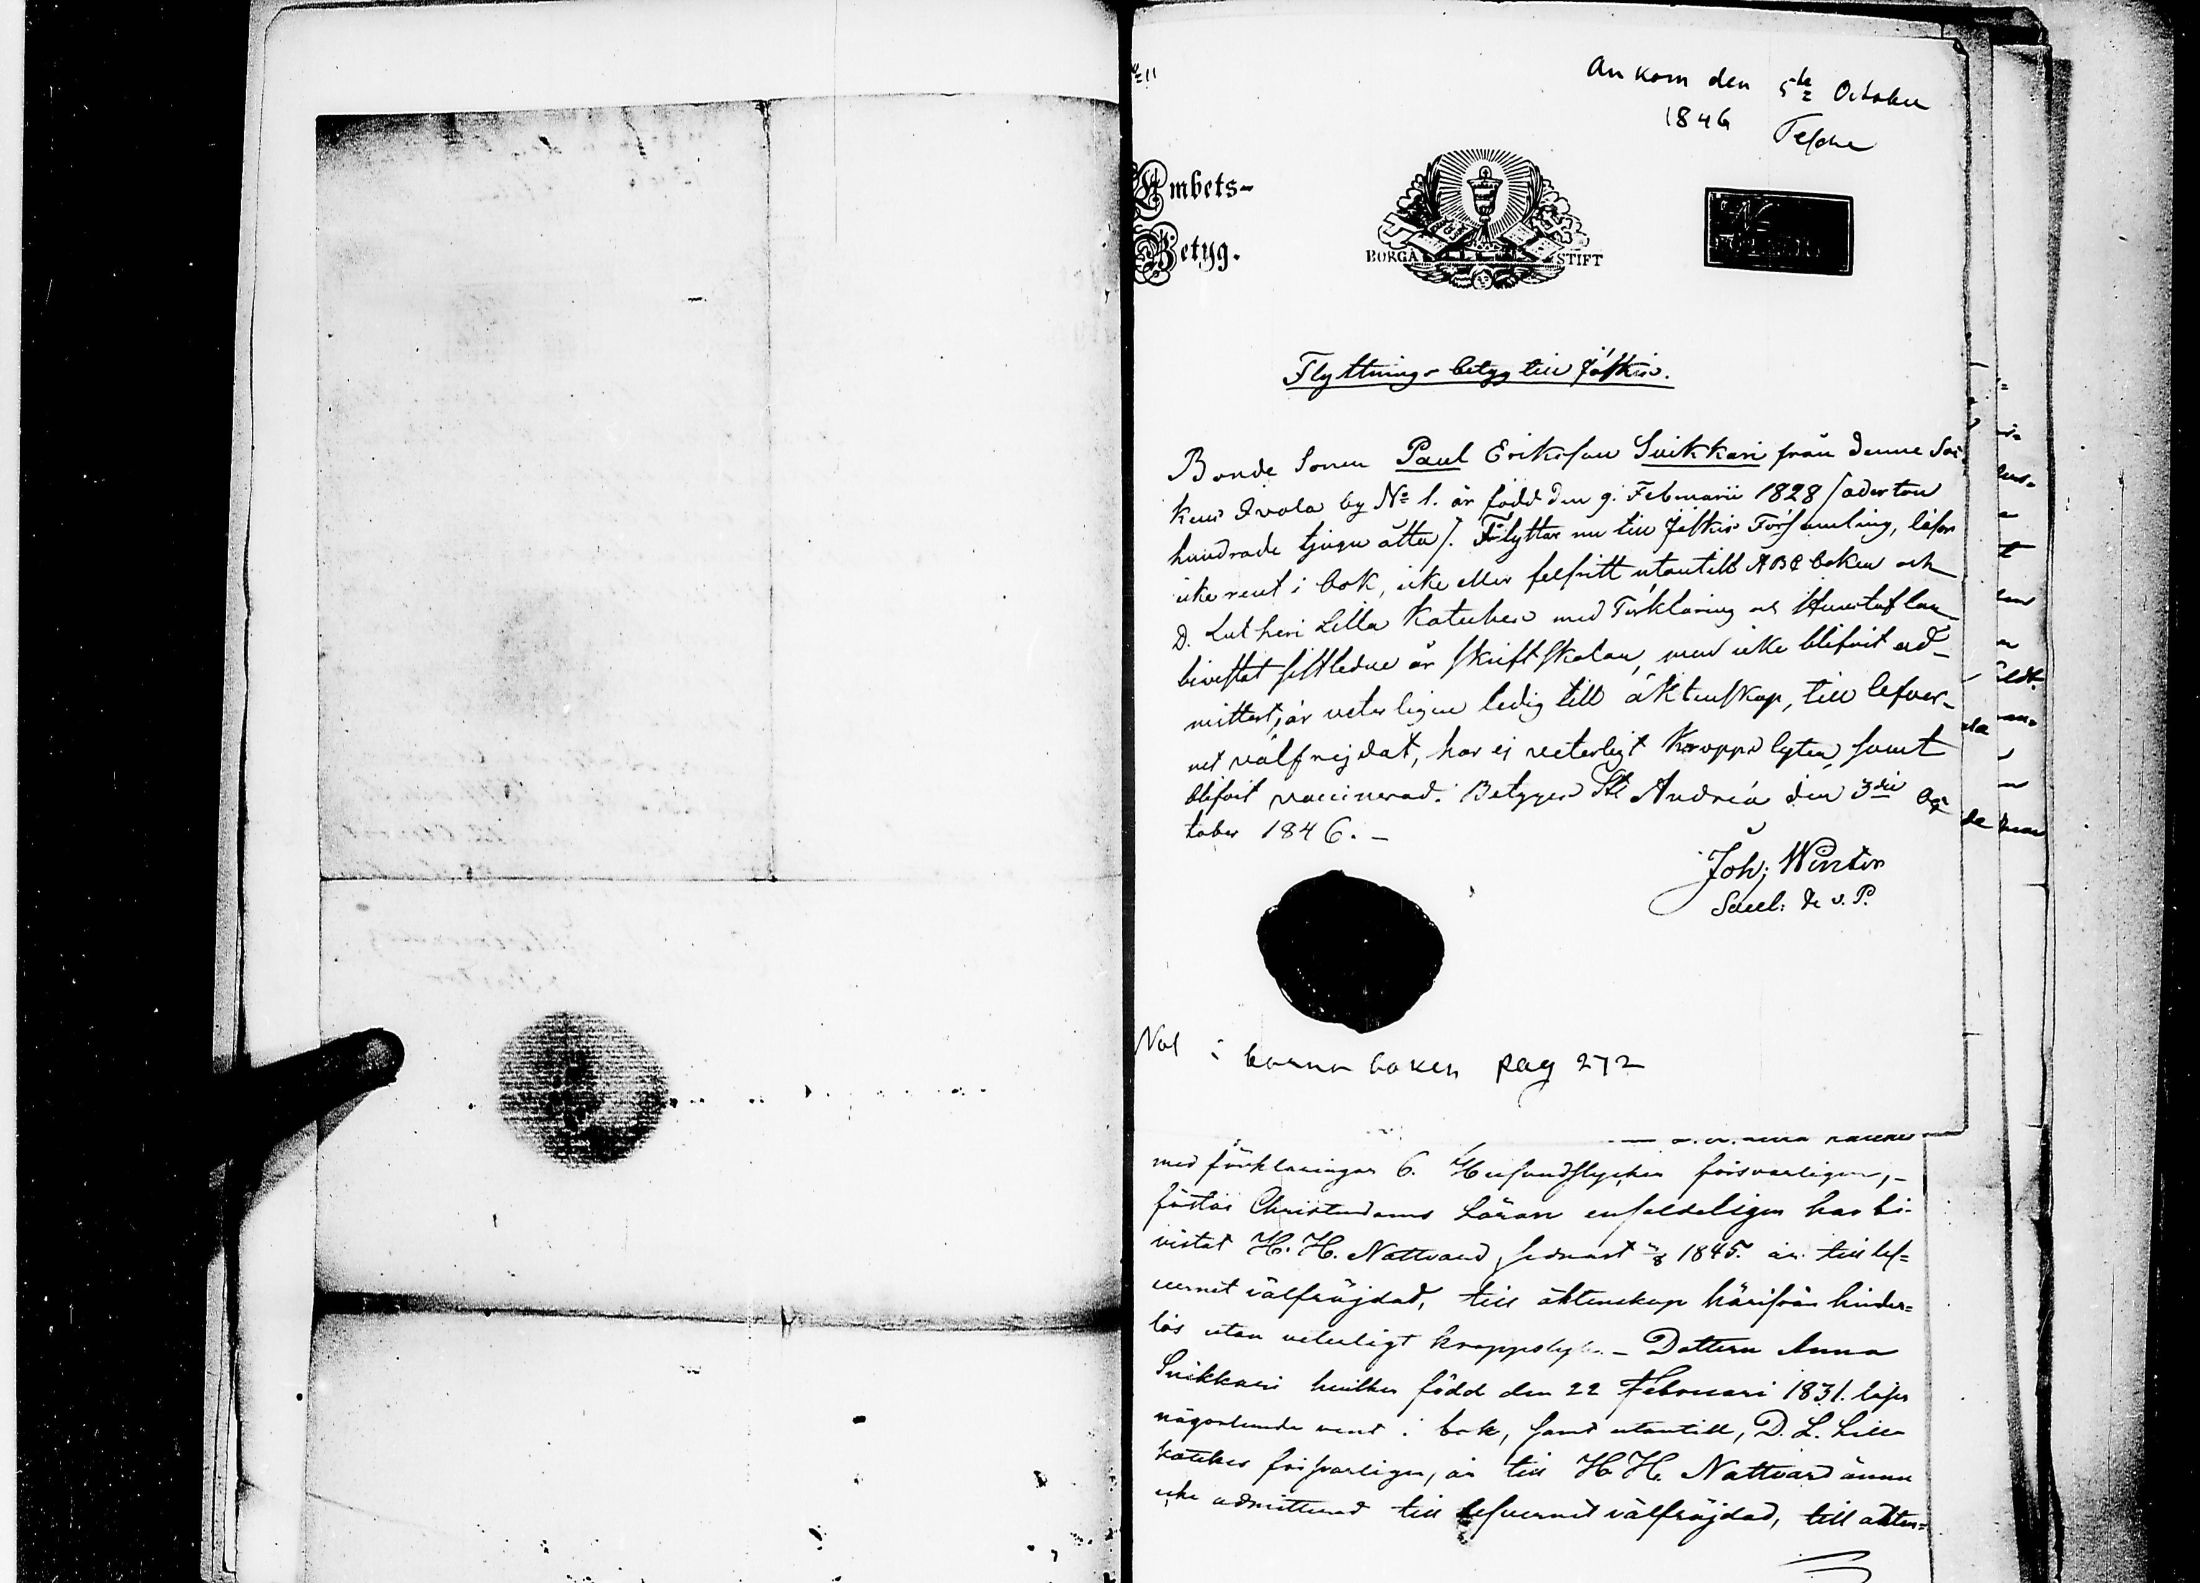 Ankom den 5te October
1846
Embets-
Betyg.
BORGÅ STIFT
Flyttnings betyg till Jäskis.
Bonde Sonen Paul Eriksson Suikkari från denne Soc-
kens by No 1. är född den 9. Februarii 1828 /aderton
hundrade tjugu åtta/. Flyttar nu till Jäskis Församling, läser
icke rent i bok, icke eller felfritt utantill ABC boken och
D. Lutheri Lilla Kateches med Förklaring och Hustaflan
bivistat sistledne år Skriftskolan, men icke blifvit ad-
mitterd; är veterligen ledig till äktenskap, till lefver-
net välfrejdat, har ej veterligt kropps lyten, samt
blifvit vaccinerad. Betygar St Andreæ den 3die Oc-
tober 1846. -
Joh; Winter
Sacell: & v. P.
Not i barna boken pag 272
med förklaringar 6. försvarligen, -
förstår Christendoms Läran enfaldeligen har bi-
vistat H. H. Nattvard sednast 1845. är till lef-
vernet välfräjdad, till äktenskap härifrån hinder-
lös utan veterligt kroppslyte. - Dottern Anna
Suikkari hvilken född den 22 Februari 1831. läser
någorlunda rent i bok, samt utantill, D. L. Lilla
Kateches försvarligen, är till H. H. Nattvard ännu
icke admitterad till lefvernet välfräjdad, till äkten-